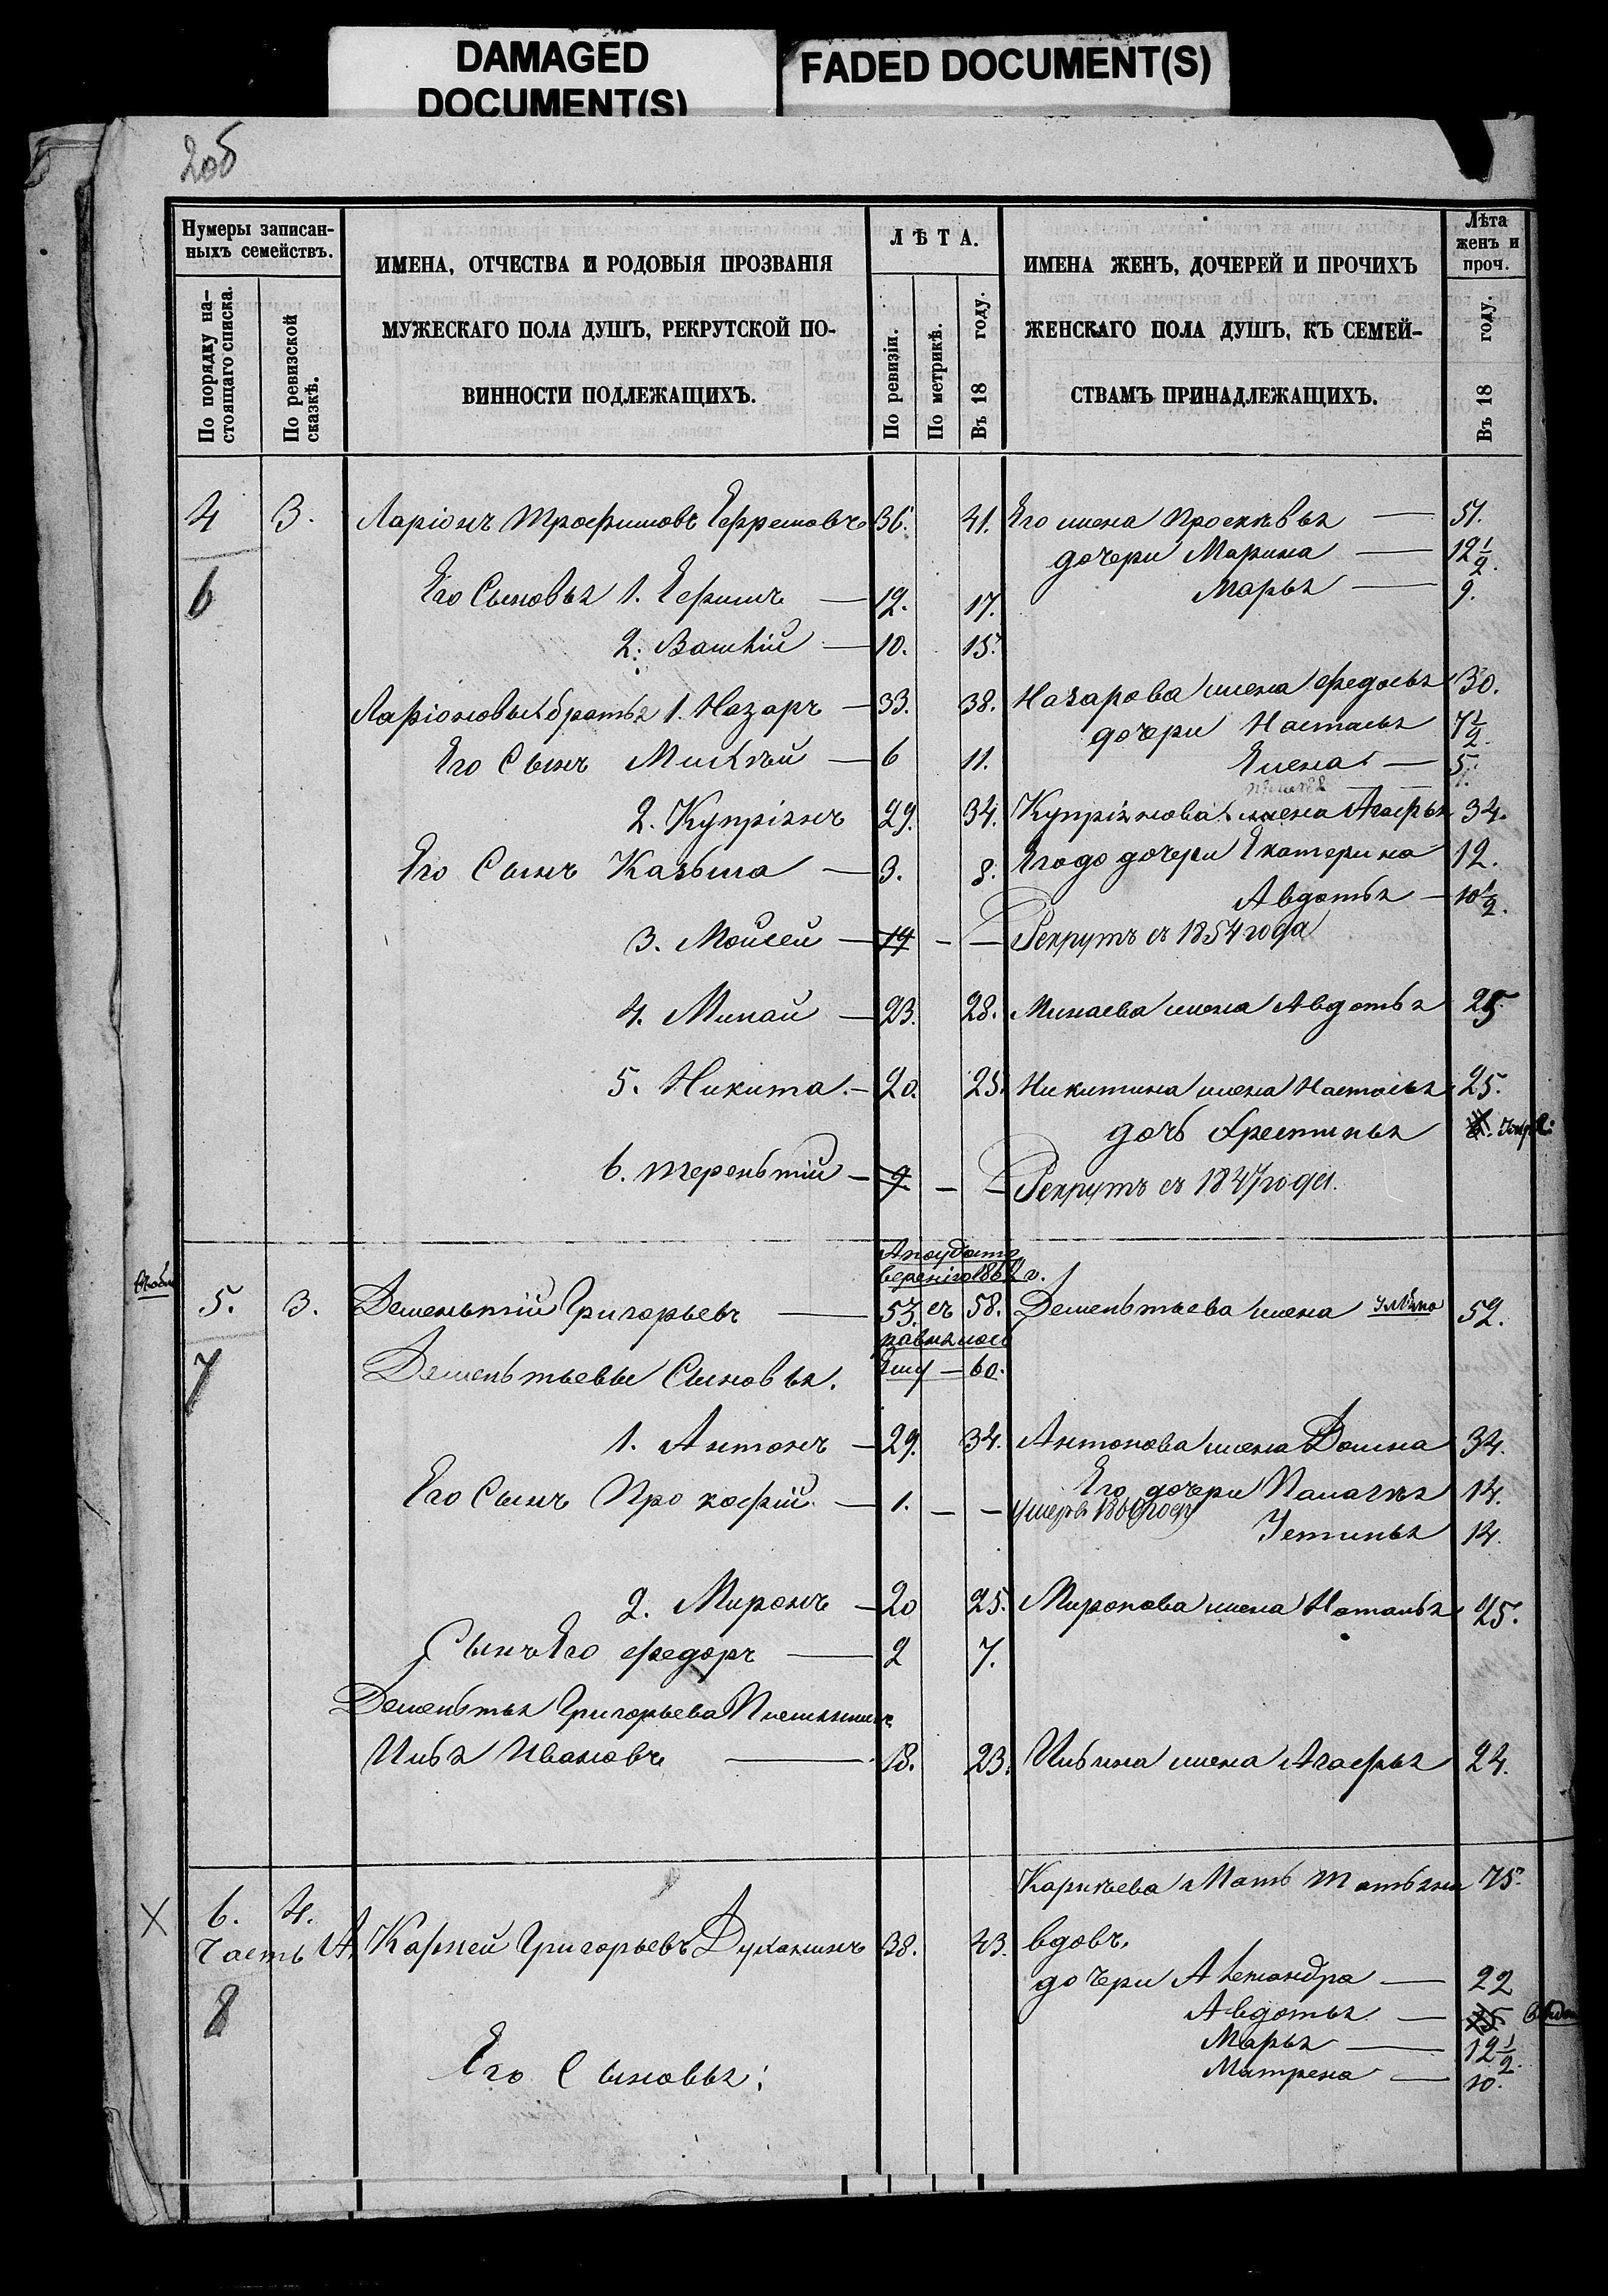 DAMAGED
DOCUMENT(S)
FADED DOCUMENT(S)
206
Нумеры записан-
ныхъ семействъ.
По порядку на-
стоящаго списка.
По ревизской
сказкѣ.
ИМЕНА, ОТЧЕСТВА И РОДОВЫЯ ПРОЗВАНІЯ
МУЖЕСКАГО ПОЛА ДУШЪ, РЕКРУТСКОЙ ПО-
ВИННОСТИ ПОДЛЕЖАЩИХЪ.
ЛѢТА.
По ревизіи.
По метрикѣ.
Въ 18 году.
ИМЕНА ЖЕНЪ, ДОЧЕРЕЙ И ПРОЧИХЪ
ЖЕНСКАГО ПОЛА ДУШЪ, КЪ СЕМЕЙ-
СТВАМЪ ПРИНАДЛЕЖАЩИХЪ.
Лѣта
женъ и
проч.
Въ 18 году.
4 3. Ларіонъ Трофимовъ Ефремовъ 36. 41. Его жена Просковья — 51.
дочери Марина — 12 1/2.
6 Его Сыновья 1. Ефимъ — 12. 17. Марья — 9.
2. — 10. 15.
Ларіоновы братья 1. Назаръ — 33. 38. Назарова жена Федосья 30.
дочери Настасья 7 1/2.
Его Сынъ — 6 11. Елена — 5.
2. Купріянъ 29. 34. Купріянова жена Агафья 34.
Его Сынъ Казьма — 3. 8. Его дочери Екатерина 12.
Авдотья — 10 1/2.
3. Мойсей — 14 — — Рекрутъ съ 1854 года
4. Минай — 23. 28. Минаева жена Авдотья 25
5. Никита — 20. 25. Никитина жена Настасья 25.
дочь Хрестинья
6. Терентій — 9 — — Рекрутъ съ 1847 года.
5. 3. Дементій Григорьевъ — 53. 58. Дементьева жена 52.
7 Дементьевы Сыновья. ему — 60.
1. Антонъ — 29. 34. Антонова жена Домна 34.
Его дочери Палагея 14.
Его Сынъ Прокофій — 1. — —
Устинья 14.
2. Миронъ — 20 25. Миронова жена Наталья 25.
Сынъ Его Федоръ — 2 7.
Дементья Григорьева Племянникъ
Илья Ивановъ — 18. 23. Ильина жена Агафья 24.
Карнеева Мать Татьяна 75.
X 6. 4. вдова,
Часть А. Карней Григорьевъ Духанинъ 38. 43.
дочери Александра — 22
8 Авдотья —
Марья — 12 1/2.
Его Сыновья: Матрена — 10.